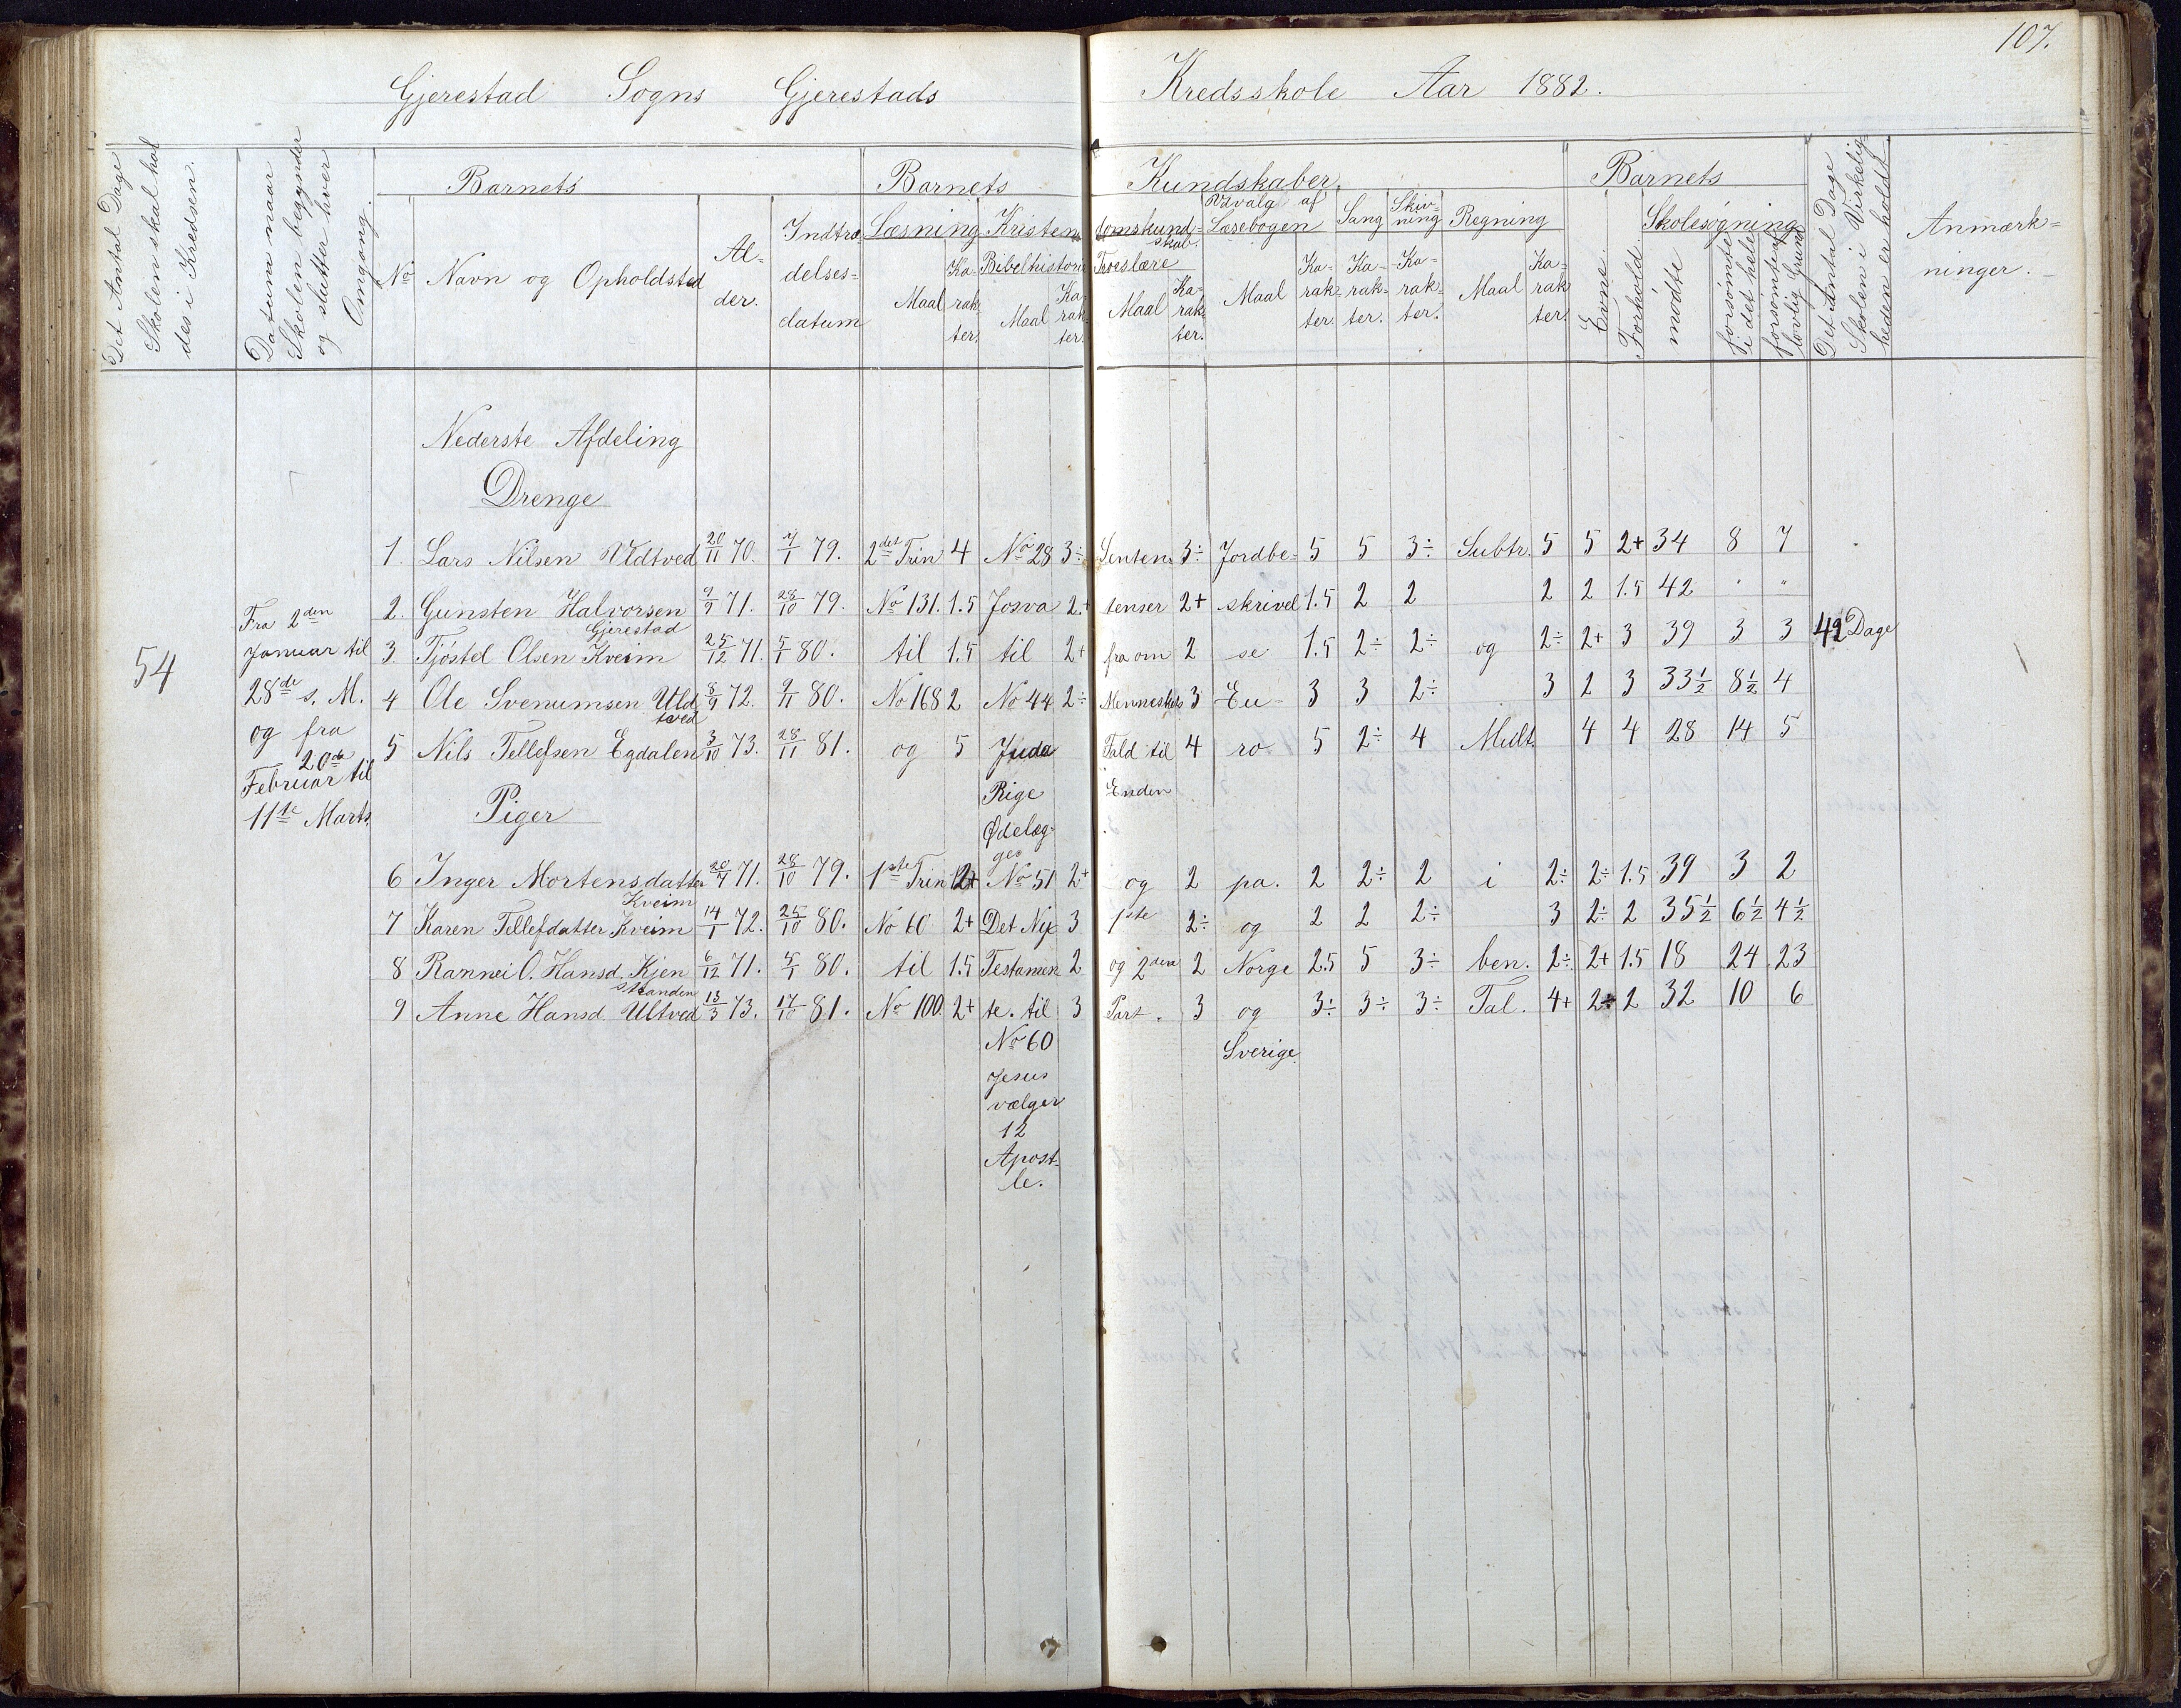 107.
Gjerestad Sogns Gjerestads Kredsskole Aar 1882.
Det Antal Dage Skolen skal holdes i Kredsen.
Datum naar Skolen begynder og slutter hver Omgang.
Barnets
No Navn og Opholdsted
Al-der.
Indtræ-delses-datum
Barnets Kundskaber.
Læsning Maal Ka-rak-ter.
Kristendomskundskab.
Bibelhistorie Maal Ka-rak-ter.
Troeslære Maal Ka-rak-ter.
Udvalg af Læsebogen Maal Ka-rak-ter.
Sang Ka-rak-ter.
Skriv-ning Ka-rak-ter.
Regning Maal Ka-rak-ter.
Barnets
Evne.
Forhold.
Skolesøgning
mødte
forsømte i det hele
forsømte af lovlig Grund
Det Antal Dage Skolen i Virkelig-heden er holdt.
Anmærk-ninger.
Nederste Afdeling
Drenge
1. Lars Nilsen Vldtved 20/11 70. 7/1 79. 2det Trin 4 No 28 3÷ Senten 3÷ Jordbe- 5 5 3÷ Subtr. 5 5 2+ 34 8 7
2. Gunsten Halvorsen Gjerestad 9/9 71. 28/10 79. No 131. 1.5 Josva 2+ tenser 2+ skrivel 1.5 2 2 2 2 1.5 42 " "
3. Tjøstel Olsen Kveim 25/12 71. 5/1 80. til 1.5 til 2+ fra om 2 se 1.5 2÷ 2÷ og 2÷ 2+ 3 39 3 3 42 Dage
4 Ole Svenumsen Uldtved 8/9 72. 9/11 80. No 168 2 No 44 2÷ Menneskets 3 Eu- 3 3 2÷ 3 2 3 33½ 8½ 4
5 Nils Tellefsen Egdalen 3/10 73. 28/11 81. og 5 Juda Fald til 4 ro 5 2÷ 4 Mult. 4 4 28 14 5
Rige Enden
Ødelæg-
ges
54
Fra 2den
Januar til
28de s. M.
og fra
20de
Februar til
11te Marts.
Piger
6 Inger Mortensdatter Kveim 20/7 71. 28/10 79. 1ste Trin 2+ No 51 2+ og 2 pa. 2 2÷ 2 i 2÷ 2÷ 1.5 39 3 2
7 Karen Tellefdatter Kveim 14/1 72. 25/10 80. No 60 2+ Det Nye 3 1ste 2÷ og 2 2 2÷ 3 2÷ 2 35½ 6½ 4½
8 Rannei O. Hansd. Kjenstranden 6/12 71. 5/1 80. til 1.5 Testamen 2 og 2den 2 Norge 2.5 5 3÷ ben. 2÷ 2+ 1.5 18 24 23
9 Anne Hansd. Ultved 13/3 73. 17/10 81. No 100. 2+ te. til 3 Part. 3 og 3÷ 3÷ 3÷ Tal. 4+ 2÷ 2 32 10 6
No 60 Sverige.
Jesus
vælger
12
Apost-
le.